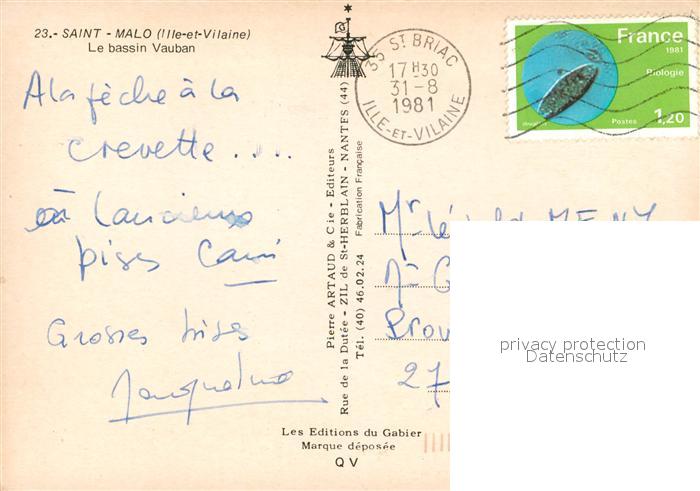 23.- SAINT - MALO (Ille-et-Vilaine)
Le bassin Vauban
A la pèche à la
crevette . . . .
à
bises
Grosses bises
Jacqueline
Pierre ARTAUD & Cie - Editeurs
Rue de la Dutée - ZIL de St-HERBLAIN - NANTES (44)
Tél. (40) 46.02.24 Fabrication Française
35 ST BRIAC
17H30
31-8
1981
ILLE-ET-VILAINE
France
1981
Biologie
Postes 1,20
Mr MENY
Prov
27
privacy protection
Datenschutz
Les Editions du Gabier
Marque déposée
QV